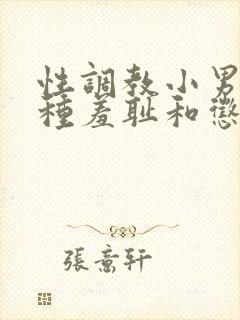 性調教小男
種羞耻和懲
張意轩